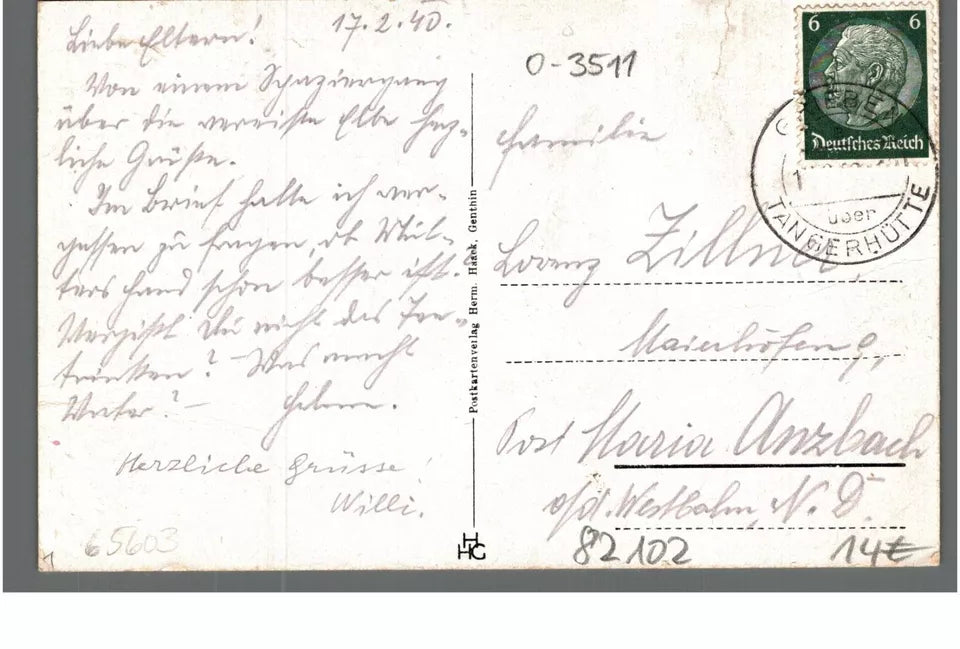 17.2.40.
Liebe Eltern!
Von einem Spaziergang
über die vereiste Elbe herz-
liche Grüße.
Im Brief hatte ich ver-
gessen zu fragen, ob Mut-
ters Hand schon besser ist.
Vergißt Du nicht das Tee-
trinken? – Was macht
Vater? –
Herzliche Grüsse!
Willi.
65603
Postkartenverlag Herm. Haack, Genthin
HHG
O-3511
6 6
Deutsches Reich
über
TANGERHÜTTE
Familie
Lorenz Zillner,
Maierhöfen 9,
Post Maria Anzbach
a/d. Westbahn, N. D.
82102
14€